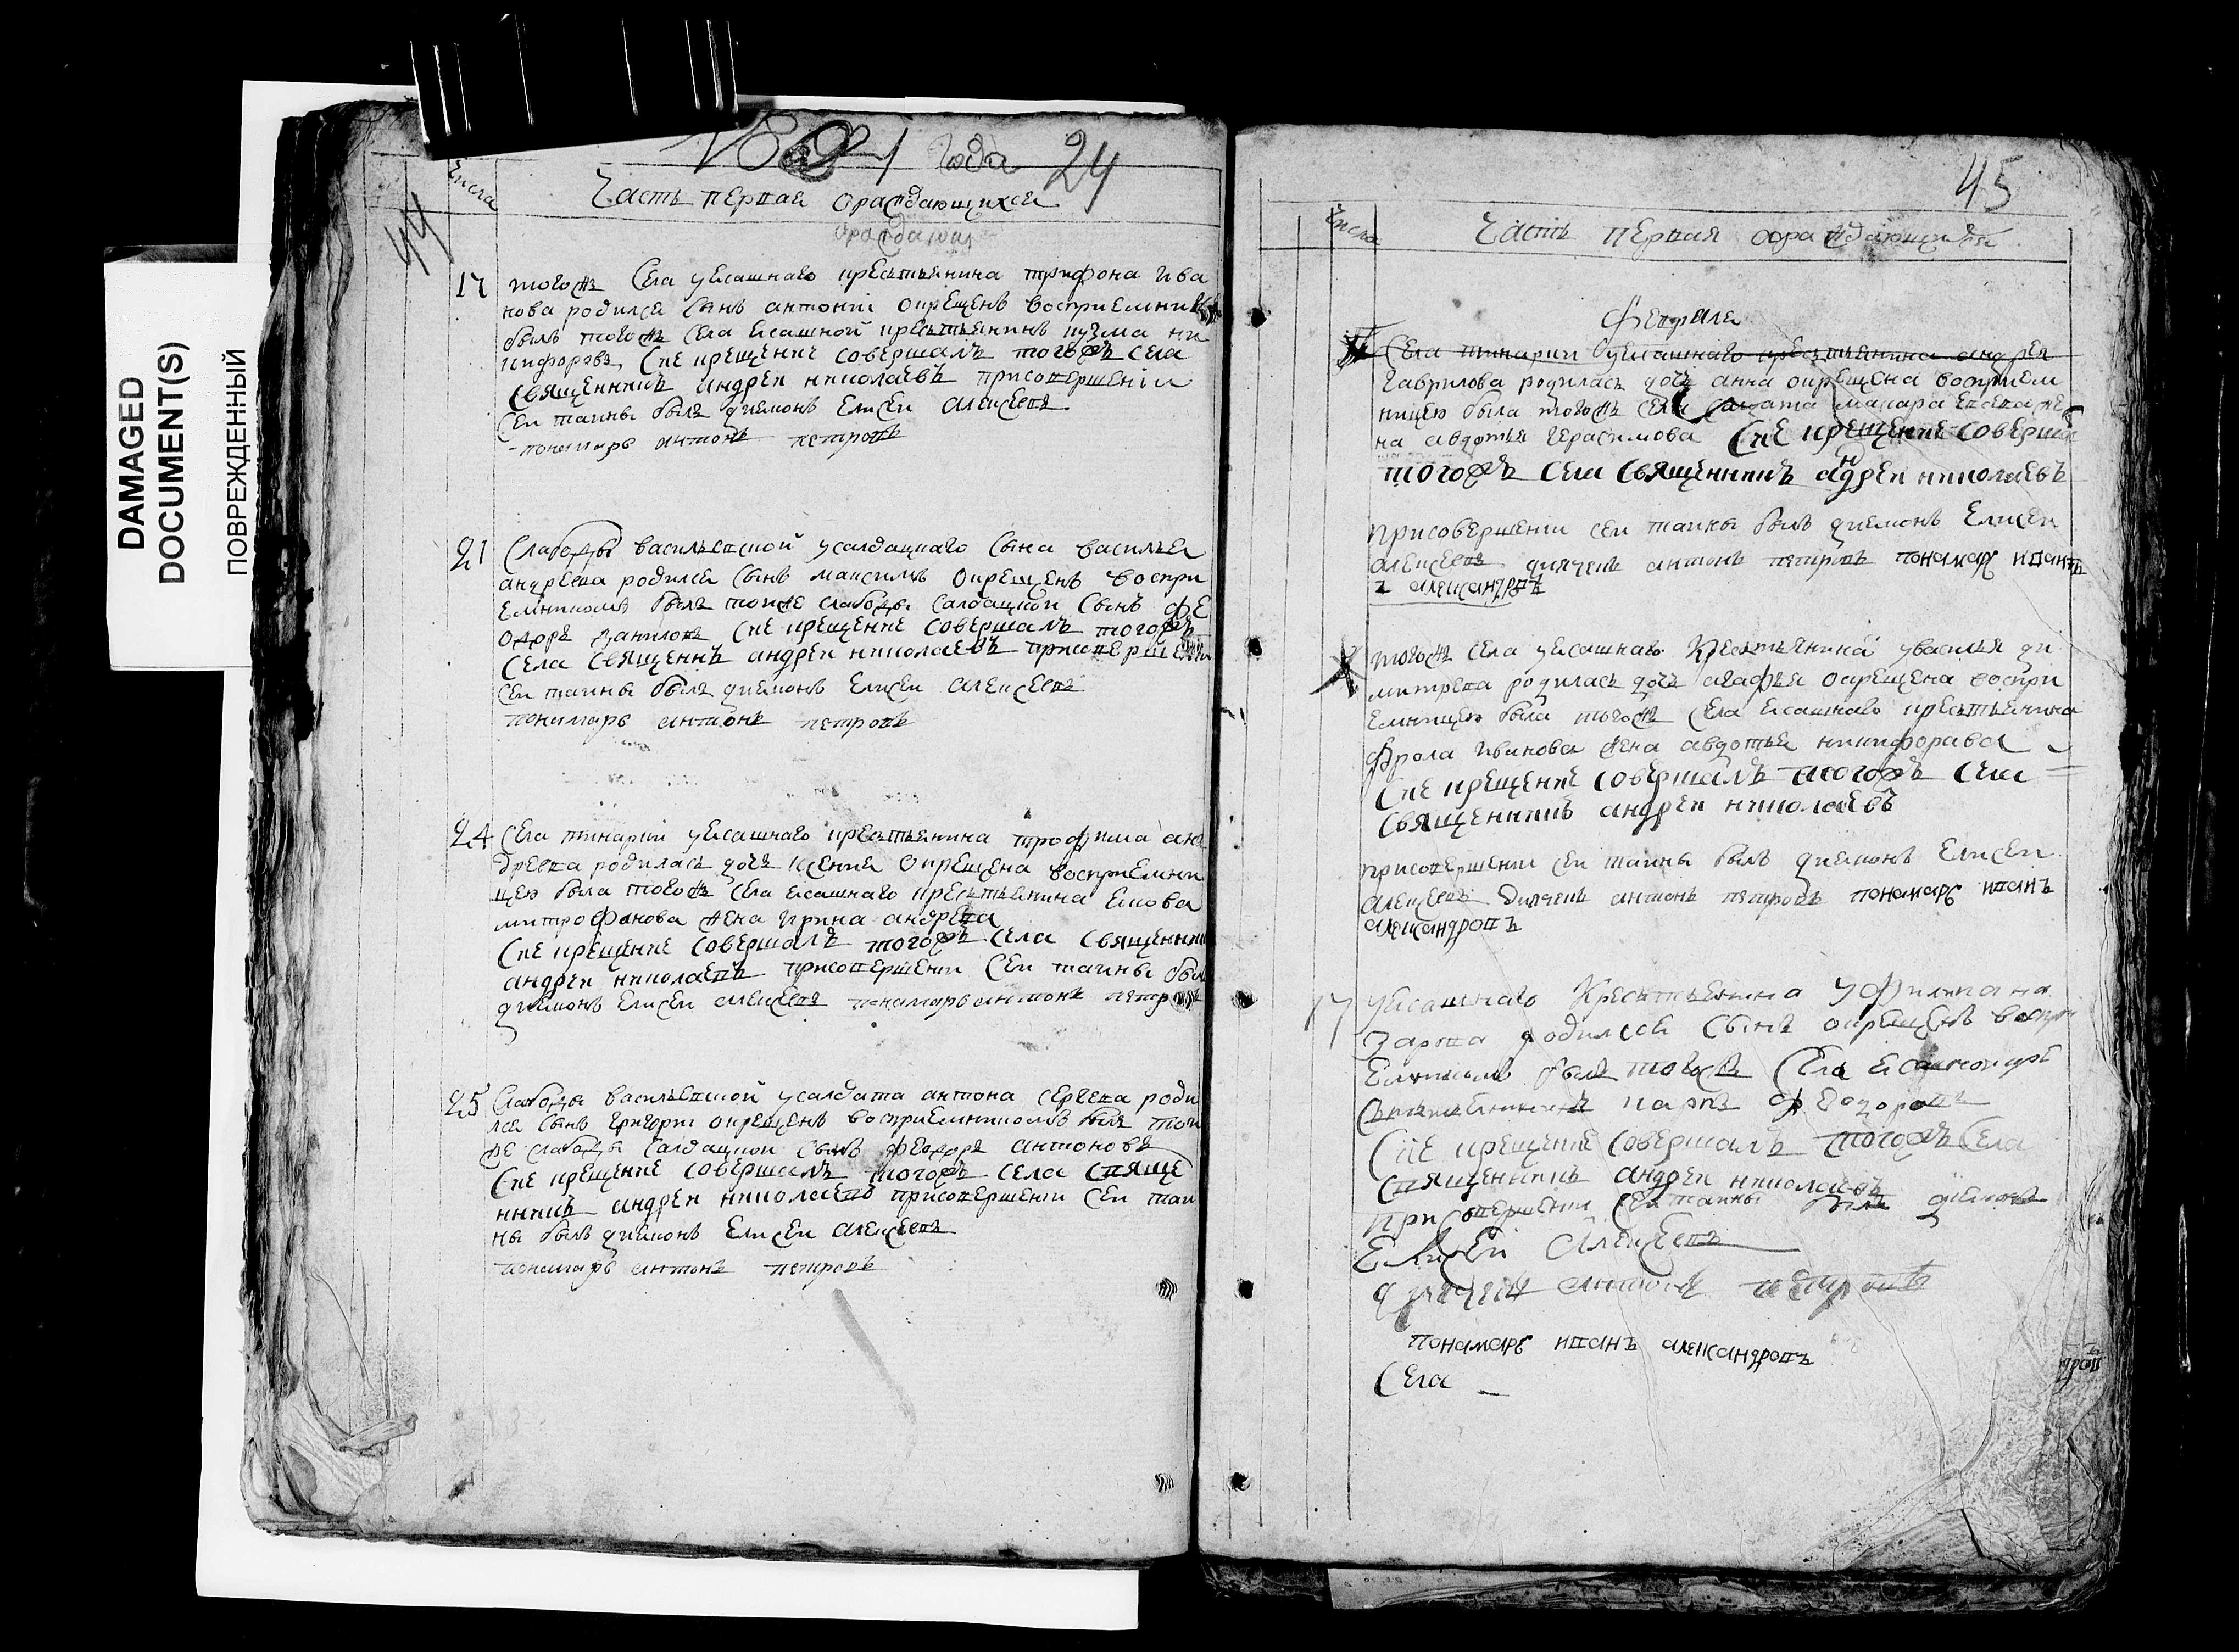 DAMAGED
DOCUMENT(S)
ПОВРЕЖДЕННЫЙ
года 24
44
числа
Часть первая ораждающихся
17 тогожъ села уясашнаго крестьянина трифона ива
нова родился сынъ антоній окрещенъ восприемник
былъ тогожъ села ясашной крестьянинъ кузма ни
кифоровъ Сие крещение совершалъ тогожъ села
священникъ андреи николаевъ присовершеніи
сеи таины былъ диаконъ Елисеи алексеевъ
понамарь антонъ петровъ
21 Слабоды васильевской усалдацкаго сына василья
андреева родился сынъ максимъ окрещенъ воспри
емникомъ былъ тоиже слабоды салдацкои сынъ фе
одоръ даниловъ Сие крещение совершалъ тогожъ
села священнъ андреи николаевъ присовершени
сеи таины былъ диаконъ Елисеи алексеевъ
понамарь антонъ петровъ
24 Села уясашнаго крестьянина трофима ан
дреева родилась дочь ксения окрещена восприемни
цею была тогожъ села ясашнаго крестьянина якова
митрофанова жена ирина андрева
Сие крещение совершалъ тогожъ села священни
андреи николаевъ присовершени сеи таины был
диаконъ Елисеи алексеевъ понамарь антонъ петровъ
25 Слабоды васильевской усалдата антона сергева роди
лся сынъ григории окрещенъ восприемникомъ былъ тои
же слабоды салдацкои сынъ феодоръ антоновъ
Сие крещение совершалъ тогожъ села свяще
нникъ андреи николаевъ присовершении сеи таи
ны былъ диаконъ Елисеи алексеевъ
понамарь антонъ петровъ
45
числа
Часть первая
Февраля
Села уясашнаго крестьянина андрея
гаврилова родилась дочь анна окрещена восприем
ницею была тогожъ села салдата макара
на авдотья герасимова Сие крещение соверша
тогожъ села священникъ андреи николаевъ
присовершени сеи таины былъ диаконъ Елисеи
алексеевъ дияченъ антонъ петровъ понамарь иванъ
александровъ
тогожъ села уясашнаго крестьянина уварилья ди
митрева родилась дочь агафья окрещена воспри
емницею была тогожъ села ясашнаго крестьянина
фрола иванова жена авдотья никифорава
Сие крещение совершалъ тогожъ села
священникъ андреи николаевъ
присовершени сеи таины былъ диаконъ Елисеи
алексеевъ диячекъ антонъ петровъ понамарь иванъ
александровъ
17 уясашнаго крестьянина уфилипана
родился сынъ окрещенъ воспри
емникомъ былъ тогожъ села
феодоровъ
Сие крещение совершалъ тогожъ села
священникъ андреи николаевъ
присовершени сеи таины былъ диаконъ
Елисеи Алексеевъ
диячекъ антонъ петровъ
понамарь иванъ александровъ
Села